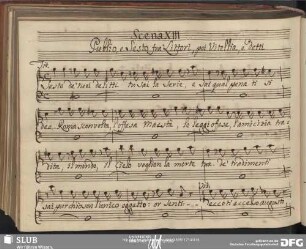 Scena XIII
Publio, e Sesto fra Littori, poi Vitellia, e Detti.
Tit.
Sesto de' tuoi delitti tu sai la serie, e sai qual pena ti si
dee. Roma sconvolta, l'offesa Maestà, le leggi offese, l'amicizia tra
dita, il mondo, il Cielo voglion la morte tua. De' tradimenti
sai pur ch'io son l'unico oggetto: or senti
Vit.
Eccoti eccelso Augusto
SLUB
Wir führen Wissen.